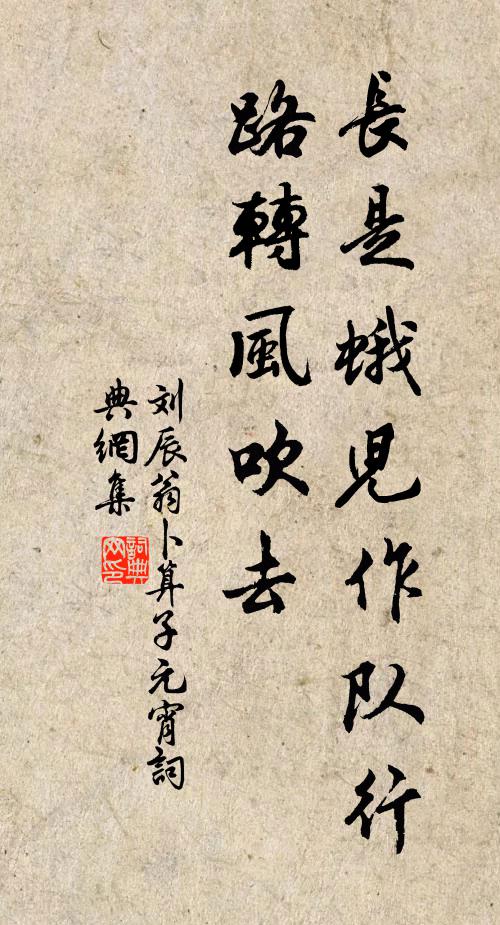 長是蛾児作队行
路轉風吹去
刘辰翁卜算子元宵詞
典網集
詞典
网印